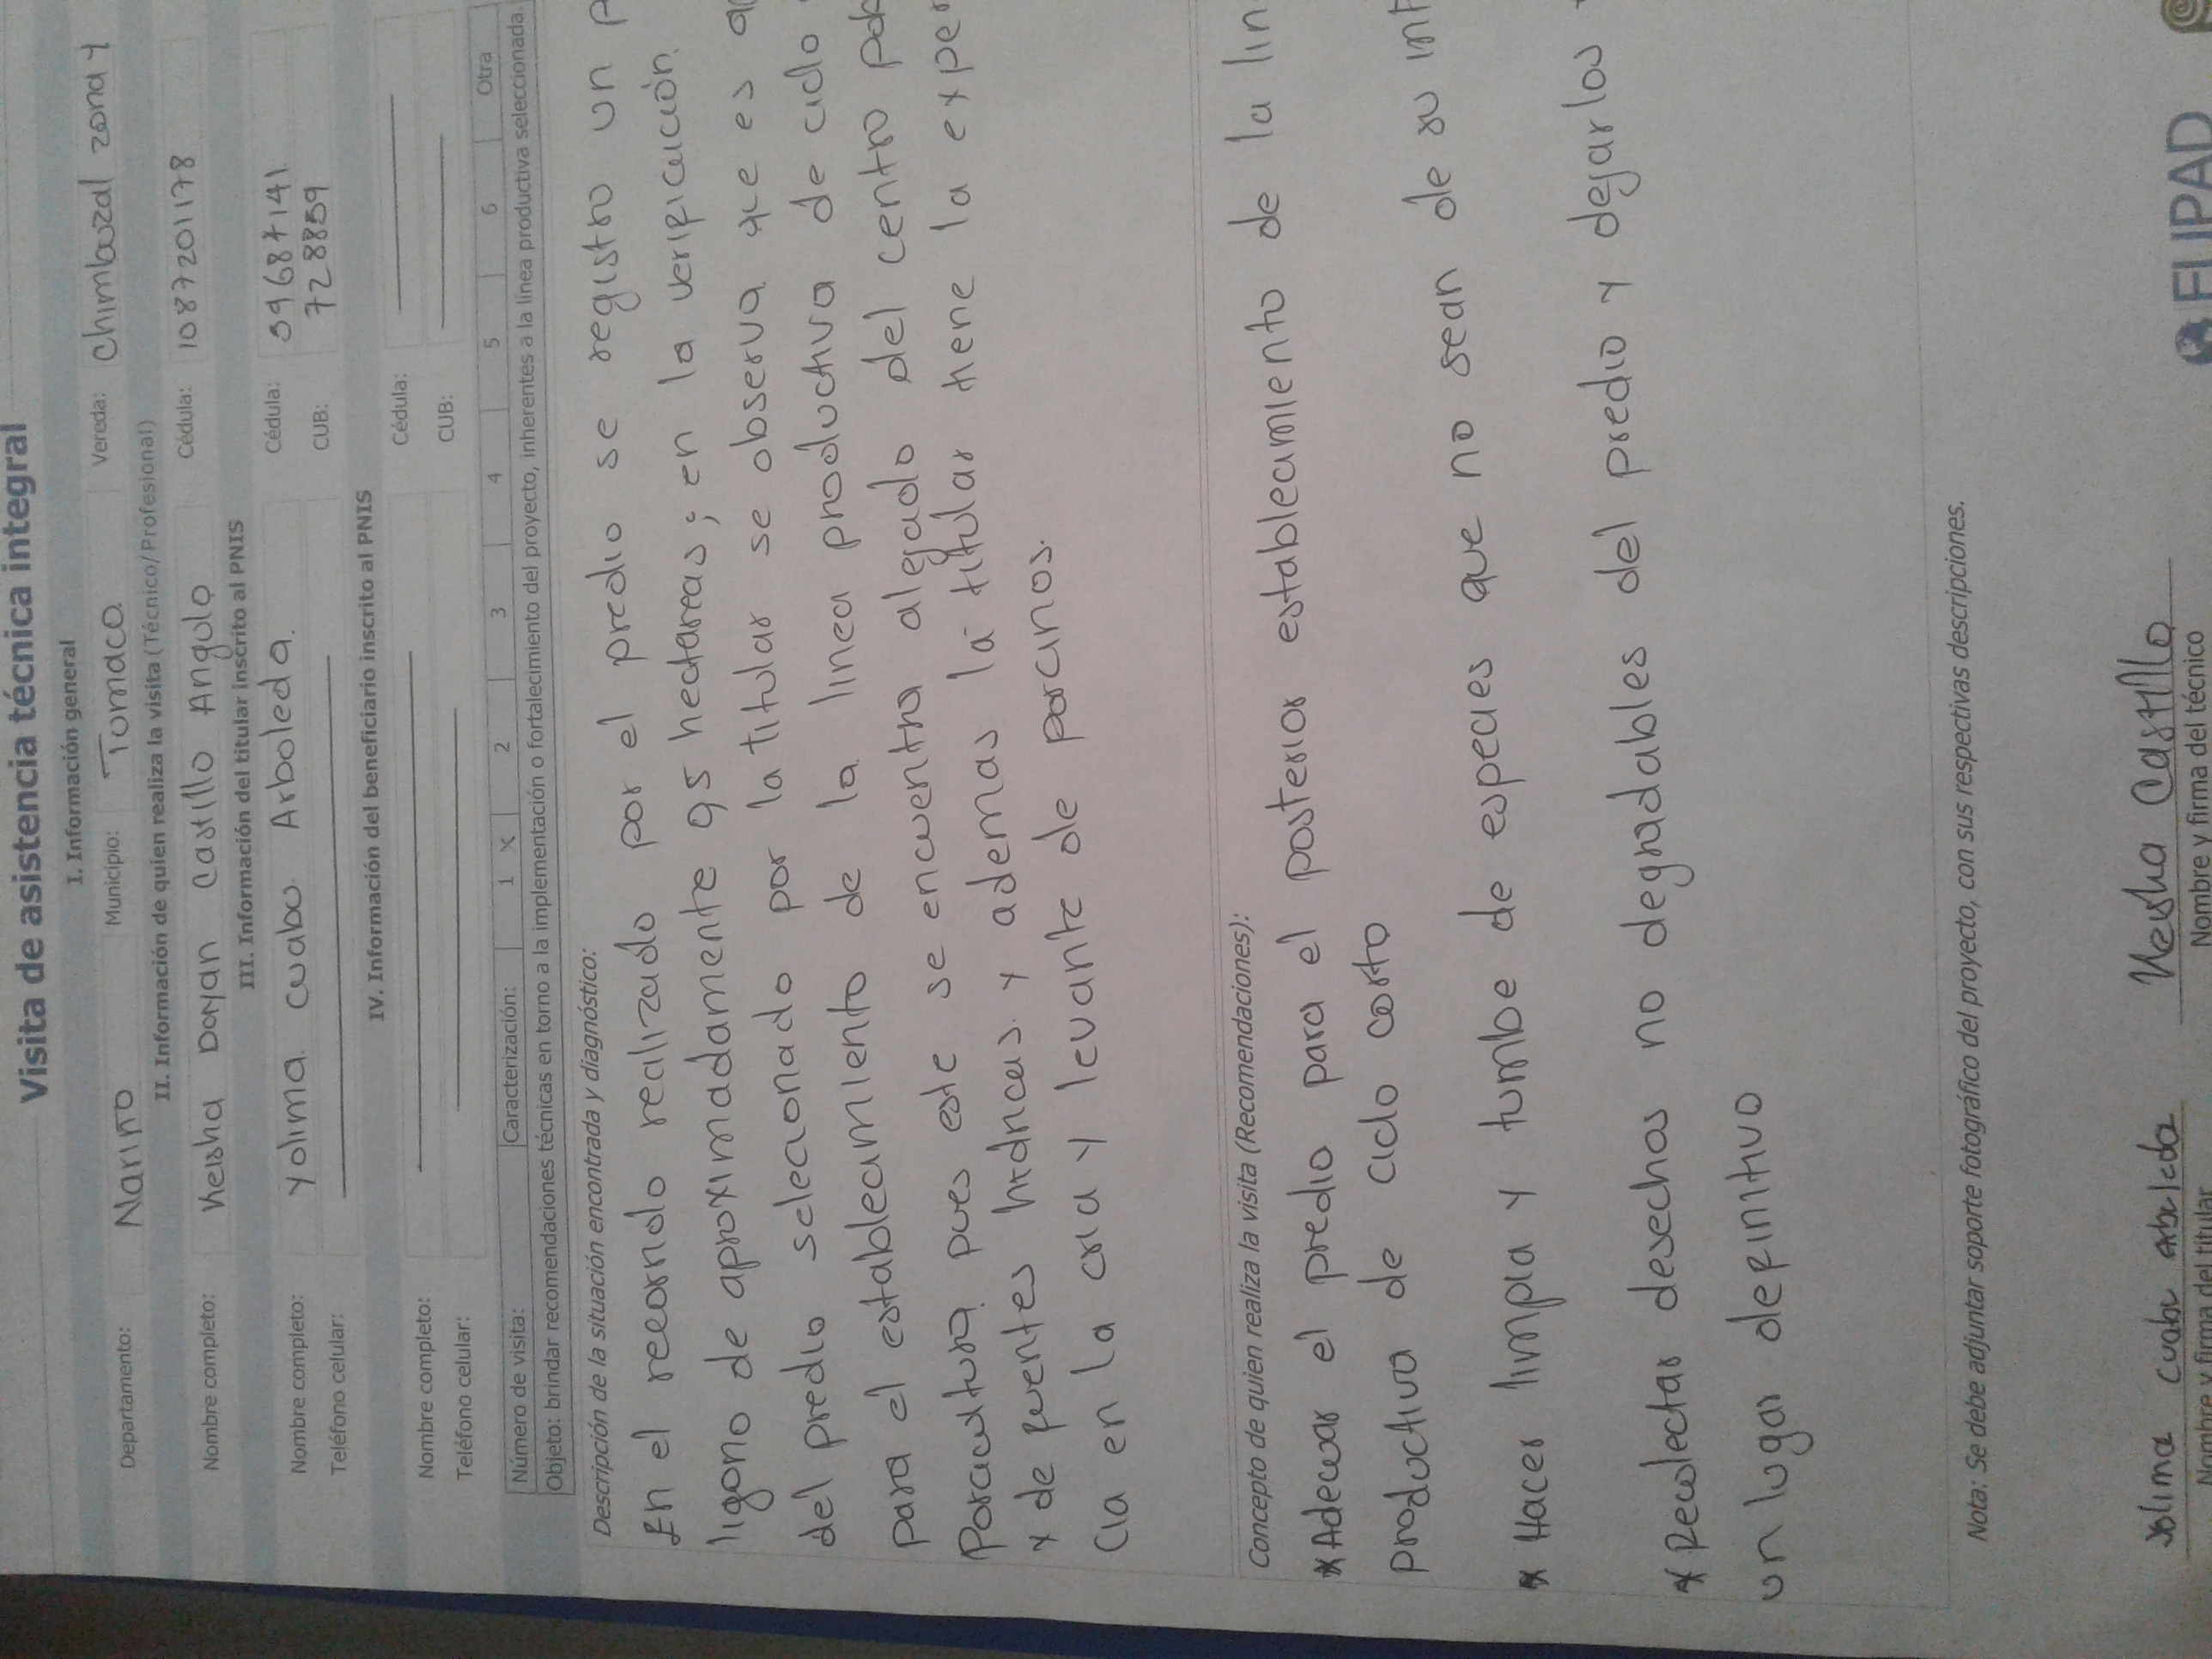 Visita de asistencia técnica integral
I. Información general
Departamento: Nariño Municipio: Tumaco. Vereda: Chimbuzal zona 4
II. Información de quien realiza la visita (Técnico/Profesional)
Nombre completo: Keisha Doyan Castillo Angulo Cédula: 1087201178
III. Información del titular inscrito al PNIS
Nombre completo: Yolima cuabu Arboleda. Cédula: 59687141
Teléfono celular: CUB: 728859
IV. Información del beneficiario inscrito al PNIS
Nombre completo: Cédula:
Teléfono celular: CUB:
Número de visita: Caracterización: 1 X 2 3 4 5 6 Otra
Objeto: brindar recomendaciones técnicas en torno a la implementación o fortalecimiento del proyecto, inherentes a la línea productiva seleccionada.
Descripción de la situación encontrada y diagnóstico:
En el recorrido realizado por el predio se registro un p
ligono de aproximadamente 95 hectareas; en la verificación.
del predio seleccionado por la titular se observa que es
para el establecimiento de la linea productiva de ciclo
Poricultura. pues este se encuentra alejado del centro pob
y de fuentes hidricas. y ademas la titular tiene la exper
cia en la cria y levante de porcinos.
Concepto de quien realiza la visita (Recomendaciones):
* Adecuar el predio para el posterior establecimiento de la lin
productiva de ciclo corto
* Hacer limpia y tumbe de especies que no sean de su int
* Recolectar desechos no degradables del predio y dejarlos
un lugar definitivo
Nota: Se debe adjuntar soporte fotográfico del proyecto, con sus respectivas descripciones.
Yolima cuabu arboleda Keisha Castillo
Nombre y firma del titular Nombre y firma del técnico
FUPAD